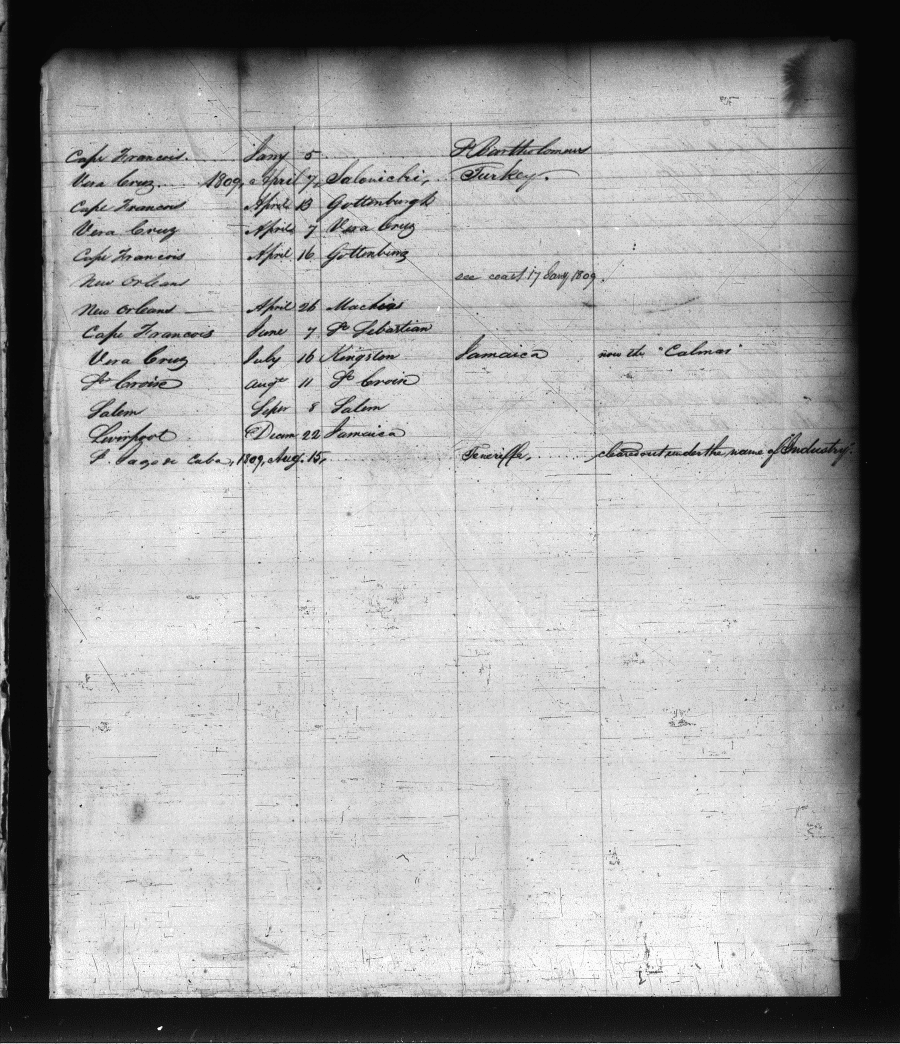 Cape Francois. Jany 5 St Bartholomews
Vera Cruz 1809, April 7, Salonichi, Turkey.
Cape Francois April 13 Gottenburgh
Vera Cruz April 7 Vera Cruz
Cape Francois April 16 Gottenburg
New Orleans see coast 17 Jany 1809.
New Orleans April 26 Machias
Cape Francois June 7 St Sebastian
Vera Cruz July 16 Kingston Jamaica now the "Calmar"
St Croix augt 11 St Croix
Salem Sepr 8 Salem
Liverpool Decem 22 Jamaica
S. Jago de Cuba, 1809, Aug. 15, Teneriffe, cleared out under the name of "Industry".